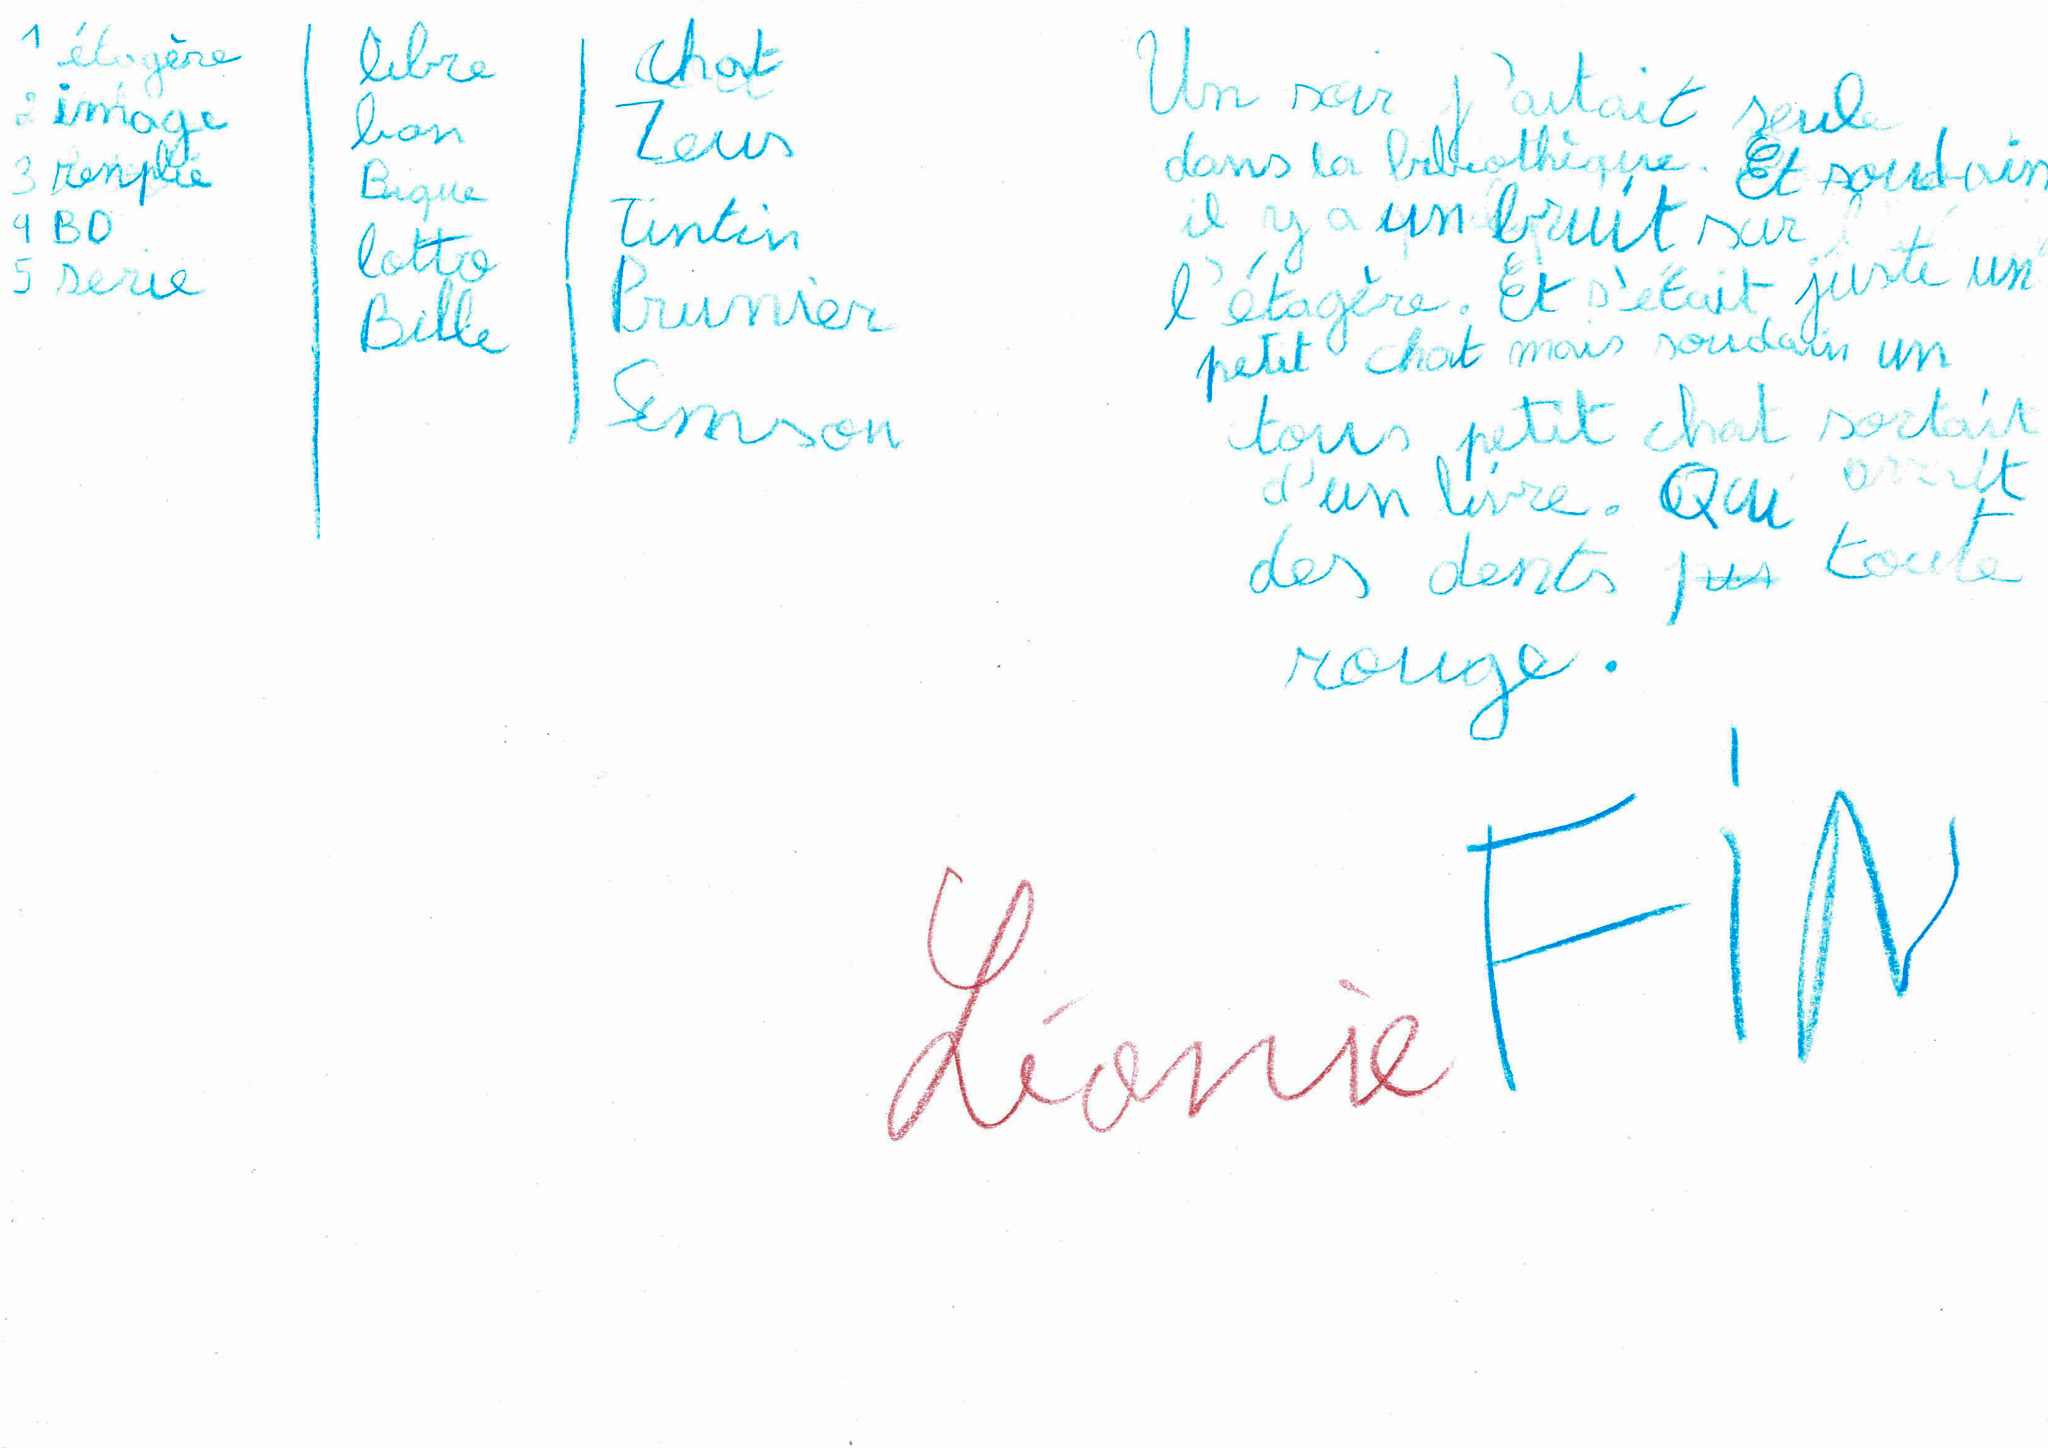 1 étagère
2 image
3 remplie
4 BD
5 serie
libre
bon
Bique
lotto
Bille
chat
Zeus
Tintin
Prunier
Semson
Un soir j'aitait seule
dans la bibliothèque. Et soudain
il y a un bruit sur
l'étagère. Et s'était juste un
petit chat mais soudain un
tous petit chat sortait
d'un livre. Qui avait
des dents toute
rouge.
FIN
Léonie